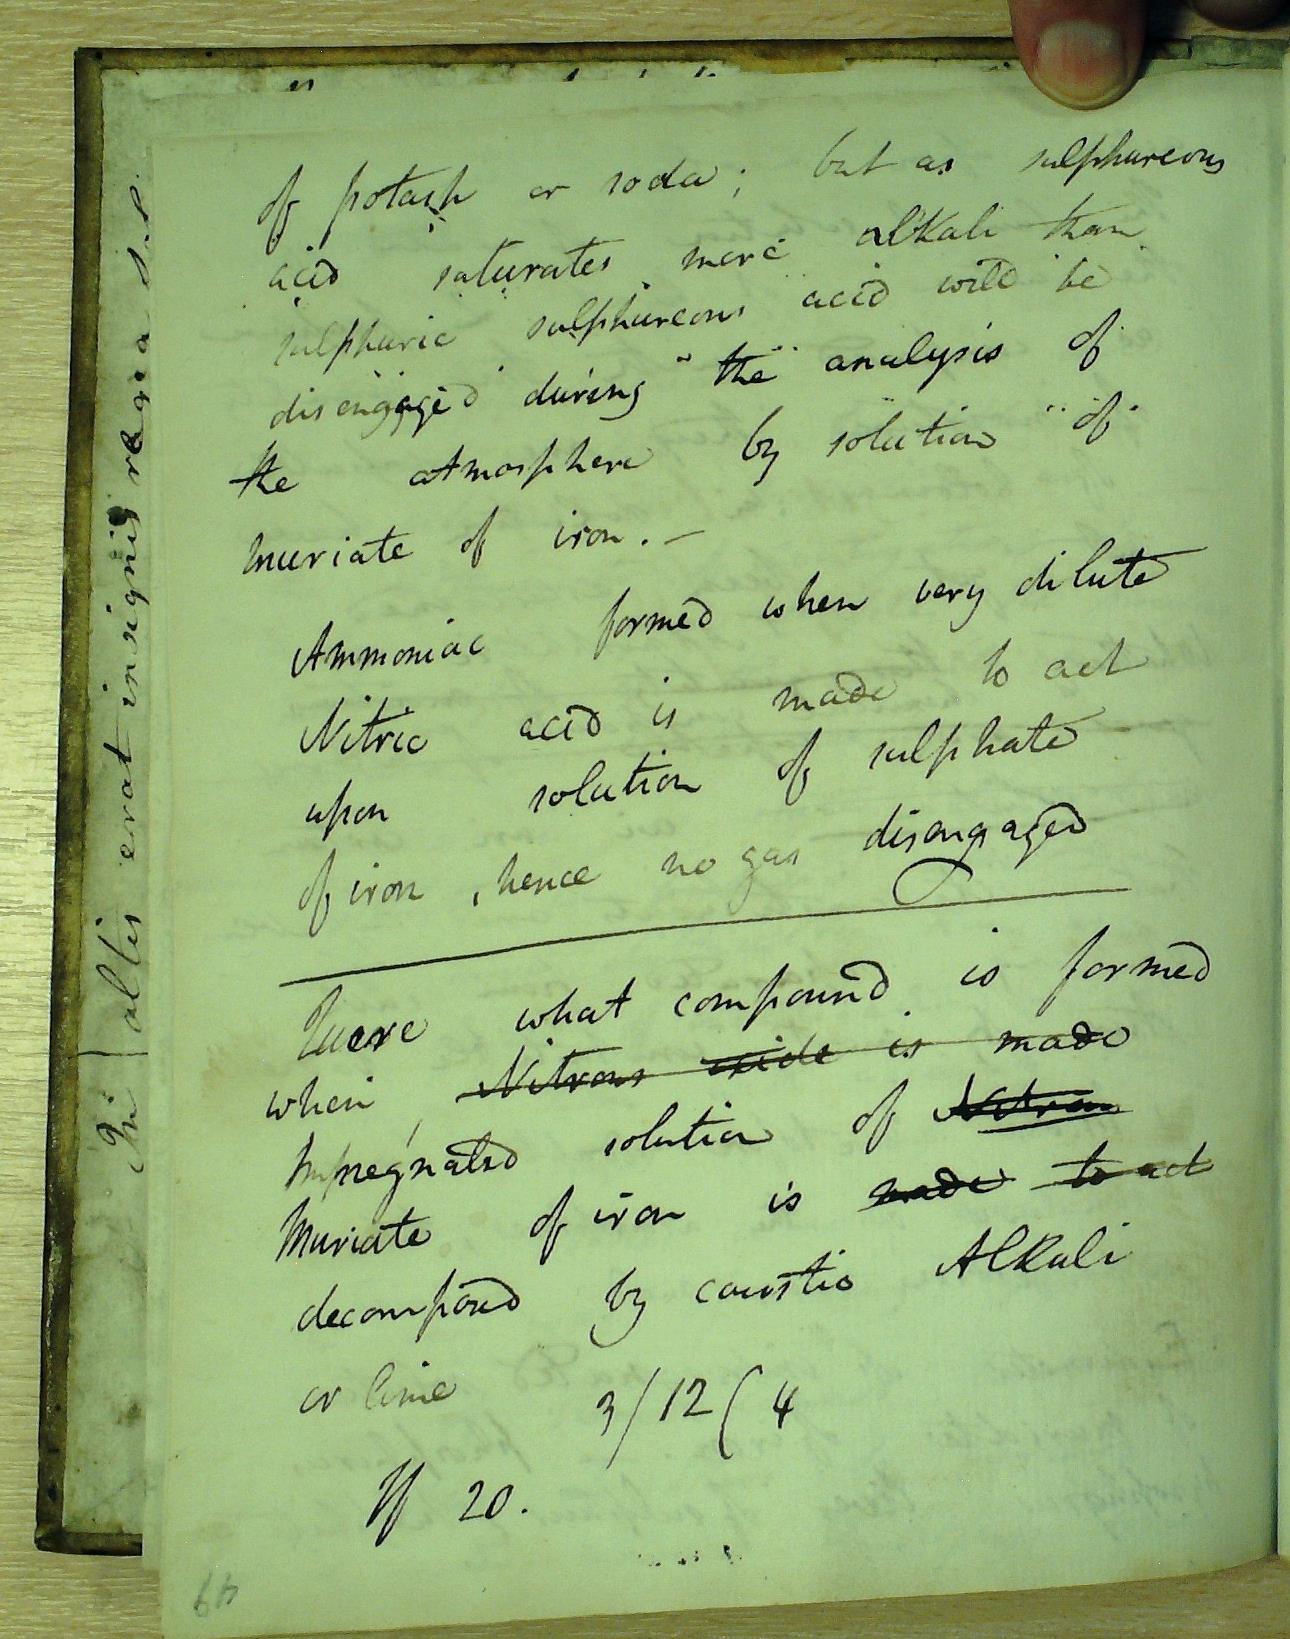 of potash or soda; but as sulphureous
acid saturates more alkali than
sulphuric sulphureous acid will be
disengaged during the analysis of
the atmosphere by solution of
muriate of iron. —
Ammoniac formed when very dilute
Nitric acid is made to act
upon solution of sulphate
of iron, hence no gas disengaged
Quere what compound is formed
when Nitrous oxide is made
Impregnated solution of Nitrous
Muriate of iron is made to act
decomposed by caustic Alkali
or lime 3/12(4
If 20.
49
In altis erat insignis regna